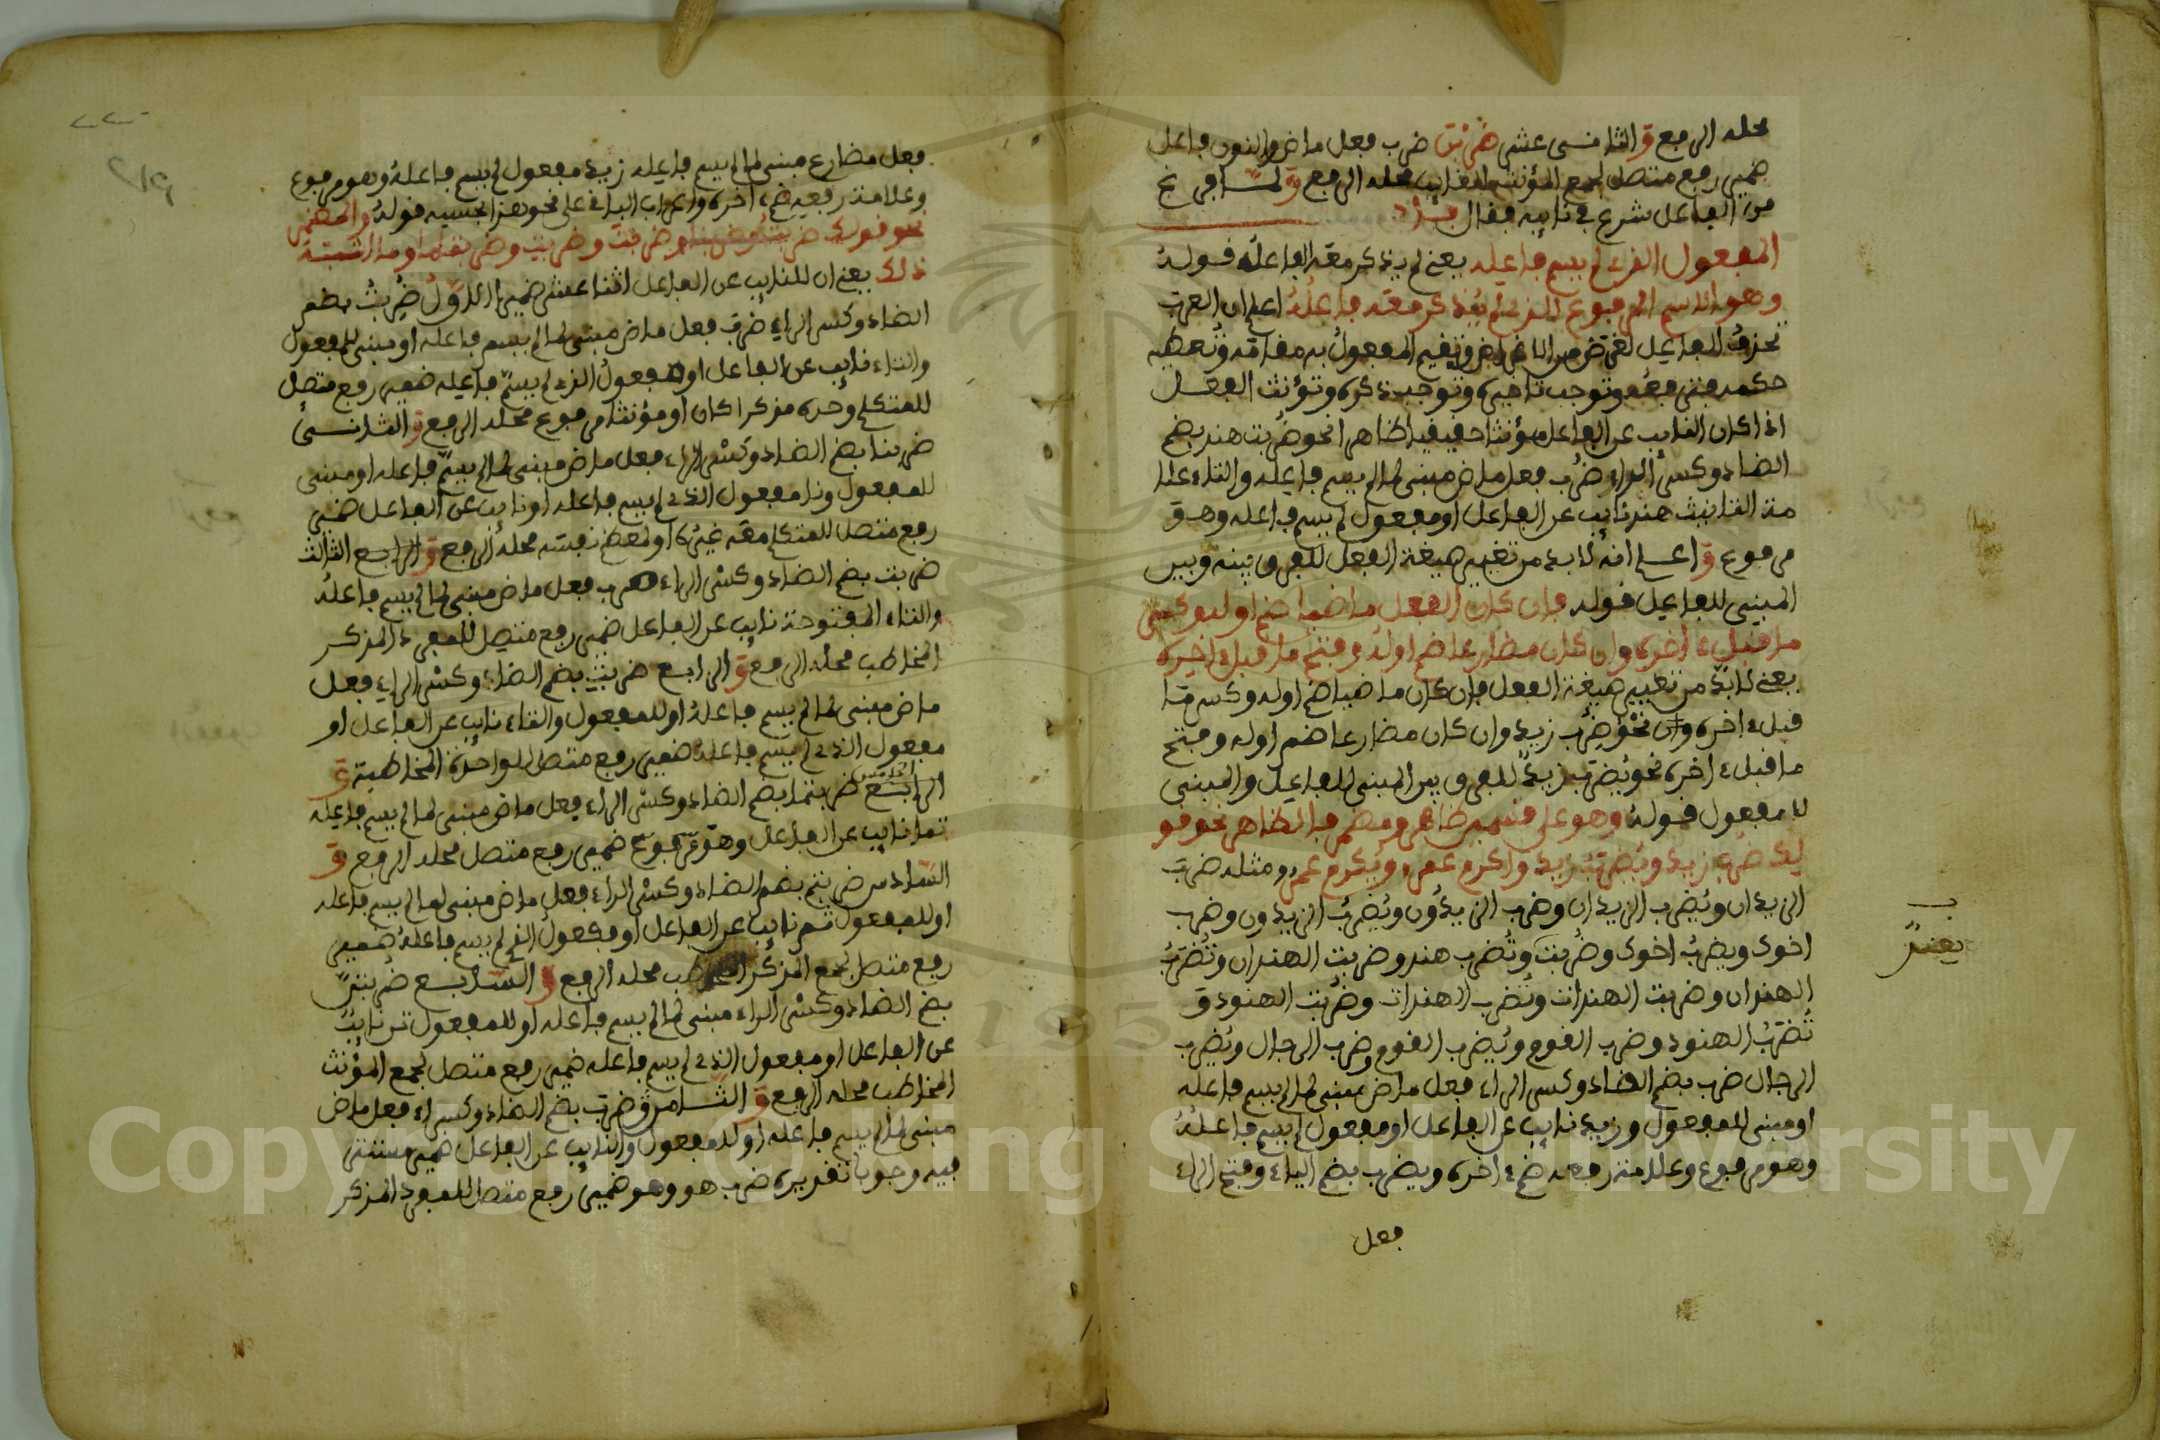 محله الرفع و الثاني عشر ضربن ضرب فعل ماض والنون فاعل
ضمير رفع متصل لجمع المؤنث الغائب محله الرفع ولما فرغ
من الفاعل شرع في نايبه فقال باب
المفعول الذي لم يسم فاعله يعني لم يذكر معه الفاعل قوله
وهو الاسم المرفوع الذي لم يذكر معه فاعله اعلم ان العرب
تحذف الفاعل لغرض من الاغراض وتقيم المفعول به مقامه وتعطيه
حكمه فترفعه وتوجب تاخيره وتوجب ذكره وتؤنث الفعل
اذا كان النايب عن الفاعل مؤنثا حقيقيا ظاهرا نحو ضربت هند بضم
الضاد وكسر الراء ضرب فعل ماض مبني لما لم يسم فاعله والتاء علا
مة التانيث هند نايب عن الفاعل او مفعول لم يسم فاعله وهو
مرفوع و اعلم انه لا بد من تغيير صيغة الفعل للفرق بينه وبين
المبني للفاعل قوله فان كان الفعل ماضيا ضم اوله وكسر
ما قبل ءاخره وان كان مضارعا ضم اوله وفتح ما قبل ءاخره
يعني لا بد من تغيير صيغة الفعل فان كان ماضيا ضم اوله وكسر ما
قبل ءاخره نحو ضرب زيد وان كان مضارعا ضم اوله وفتح
ما قبل ءاخره نحو يضرب زيد للفرق بين المبني للفاعل والمبني
للمفعول قوله وهو على قسمين ظاهر ومضمر فالظاهر نحو قو
لك ضرب زيد ويضرب زيد واكرم عمرو ويكرم عمرو ومثله ضرب
الزيدان ويضرب الزيدان وضرب الزيدون ويضرب الزيدون وضرب
اخوك ويضرب اخوك وضربت وتضرب هند وضربت الهندان وتضرب
الهندان وضربت الهندات وتضرب الهندات وضربت الهنود و
تضرب الهنود وضرب القوم ويضرب القوم وضرب الرجال ويضرب
الرجال ضرب بضم الضاد وكسر الراء فعل ماض مبني لما لم يسم فاعله
او مبني للمفعول وزيد نايب عن الفاعل او مفعول لم يسم فاعله
وهو مرفوع وعلامة رفعه ضم ءاخره ويضرب بضم الياء وفتح الراء
فعل
فعل مضارع مبني لما لم يسم فاعله زيد مفعول لم يسم فاعله وهو مرفوع
وعلامة رفعه ضم ءاخره واعراب الباقي على نحو هذا قوله والمضمر
نحو قولك ضربت وضربنا وضربت وضربت وضربتما وما اشبه
ذلك يعني ان للنايب عن الفاعل اثنا عشر ضميرا الاول ضربت بضم
الضاد وكسر الراء ضرب فعل ماض مبني لما لم يسم فاعله او مبني للمفعول
والتاء نايب عن الفاعل او مفعول الذي لم يسم فاعله ضمير رفع متصل
للمتكلم وحده مذكرا كان او مؤنثا مرفوع محله الرفع و الثاني
ضربنا بضم الضاد وكسر الراء فعل ماض مبني لما لم يسم فاعله او مبني
للمفعول ونا مفعول الذي لم يسم فاعله او نايب عن الفاعل ضمير
رفع متصل للمتكلم معه غيره او لمعظم نفسه محله الرفع و الثالث
ضربت بضم الضاد وكسر الراء ضرب فعل ماض مبني لما لم يسم فاعله
والتاء المفتوحة نايب عن الفاعل ضمير رفع متصل للمفرد المذكر
المخاطب محله الرفع و الرابع ضربت بضم الضاد وكسر الراء فعل
ماض مبني لما لم يسم فاعله او للمفعول والتاء نايب عن الفاعل او
مفعول الذي لم يسم فاعله ضمير رفع متصل للواحدة المخاطبة و
الخامس ضربتما بضم الضاد وكسر الراء فعل ماض مبني لما لم يسم فاعله
تما نايب عن الفاعل وهو مرفوع ضمير رفع متصل محله الرفع و
السادس ضربتم بضم الضاد وكسر الراء فعل ماض مبني لما لم يسم فاعله
او للمفعول تم نايب عن الفاعل او مفعول الذي لم يسم فاعله ضمير
رفع متصل لجمع المذكر المخاطب محله الرفع و السابع ضربتن
بضم الضاد وكسر الراء مبني لما لم يسم فاعله او للمفعول تن نايب
عن الفاعل او مفعول الذي لم يسم فاعله ضمير رفع متصل لجمع المؤنث
المخاطب محله الرفع و الثامن ضرب بضم الضاد وكسر الراء فعل ماض
مبني لما لم يسم فاعله او للمفعول والنايب عن الفاعل ضمير مستتر
فيه وجوبا تقديره ضرب هو وهو ضمير رفع متصل للمفرد المذكر
Copyright © King Saud University
195